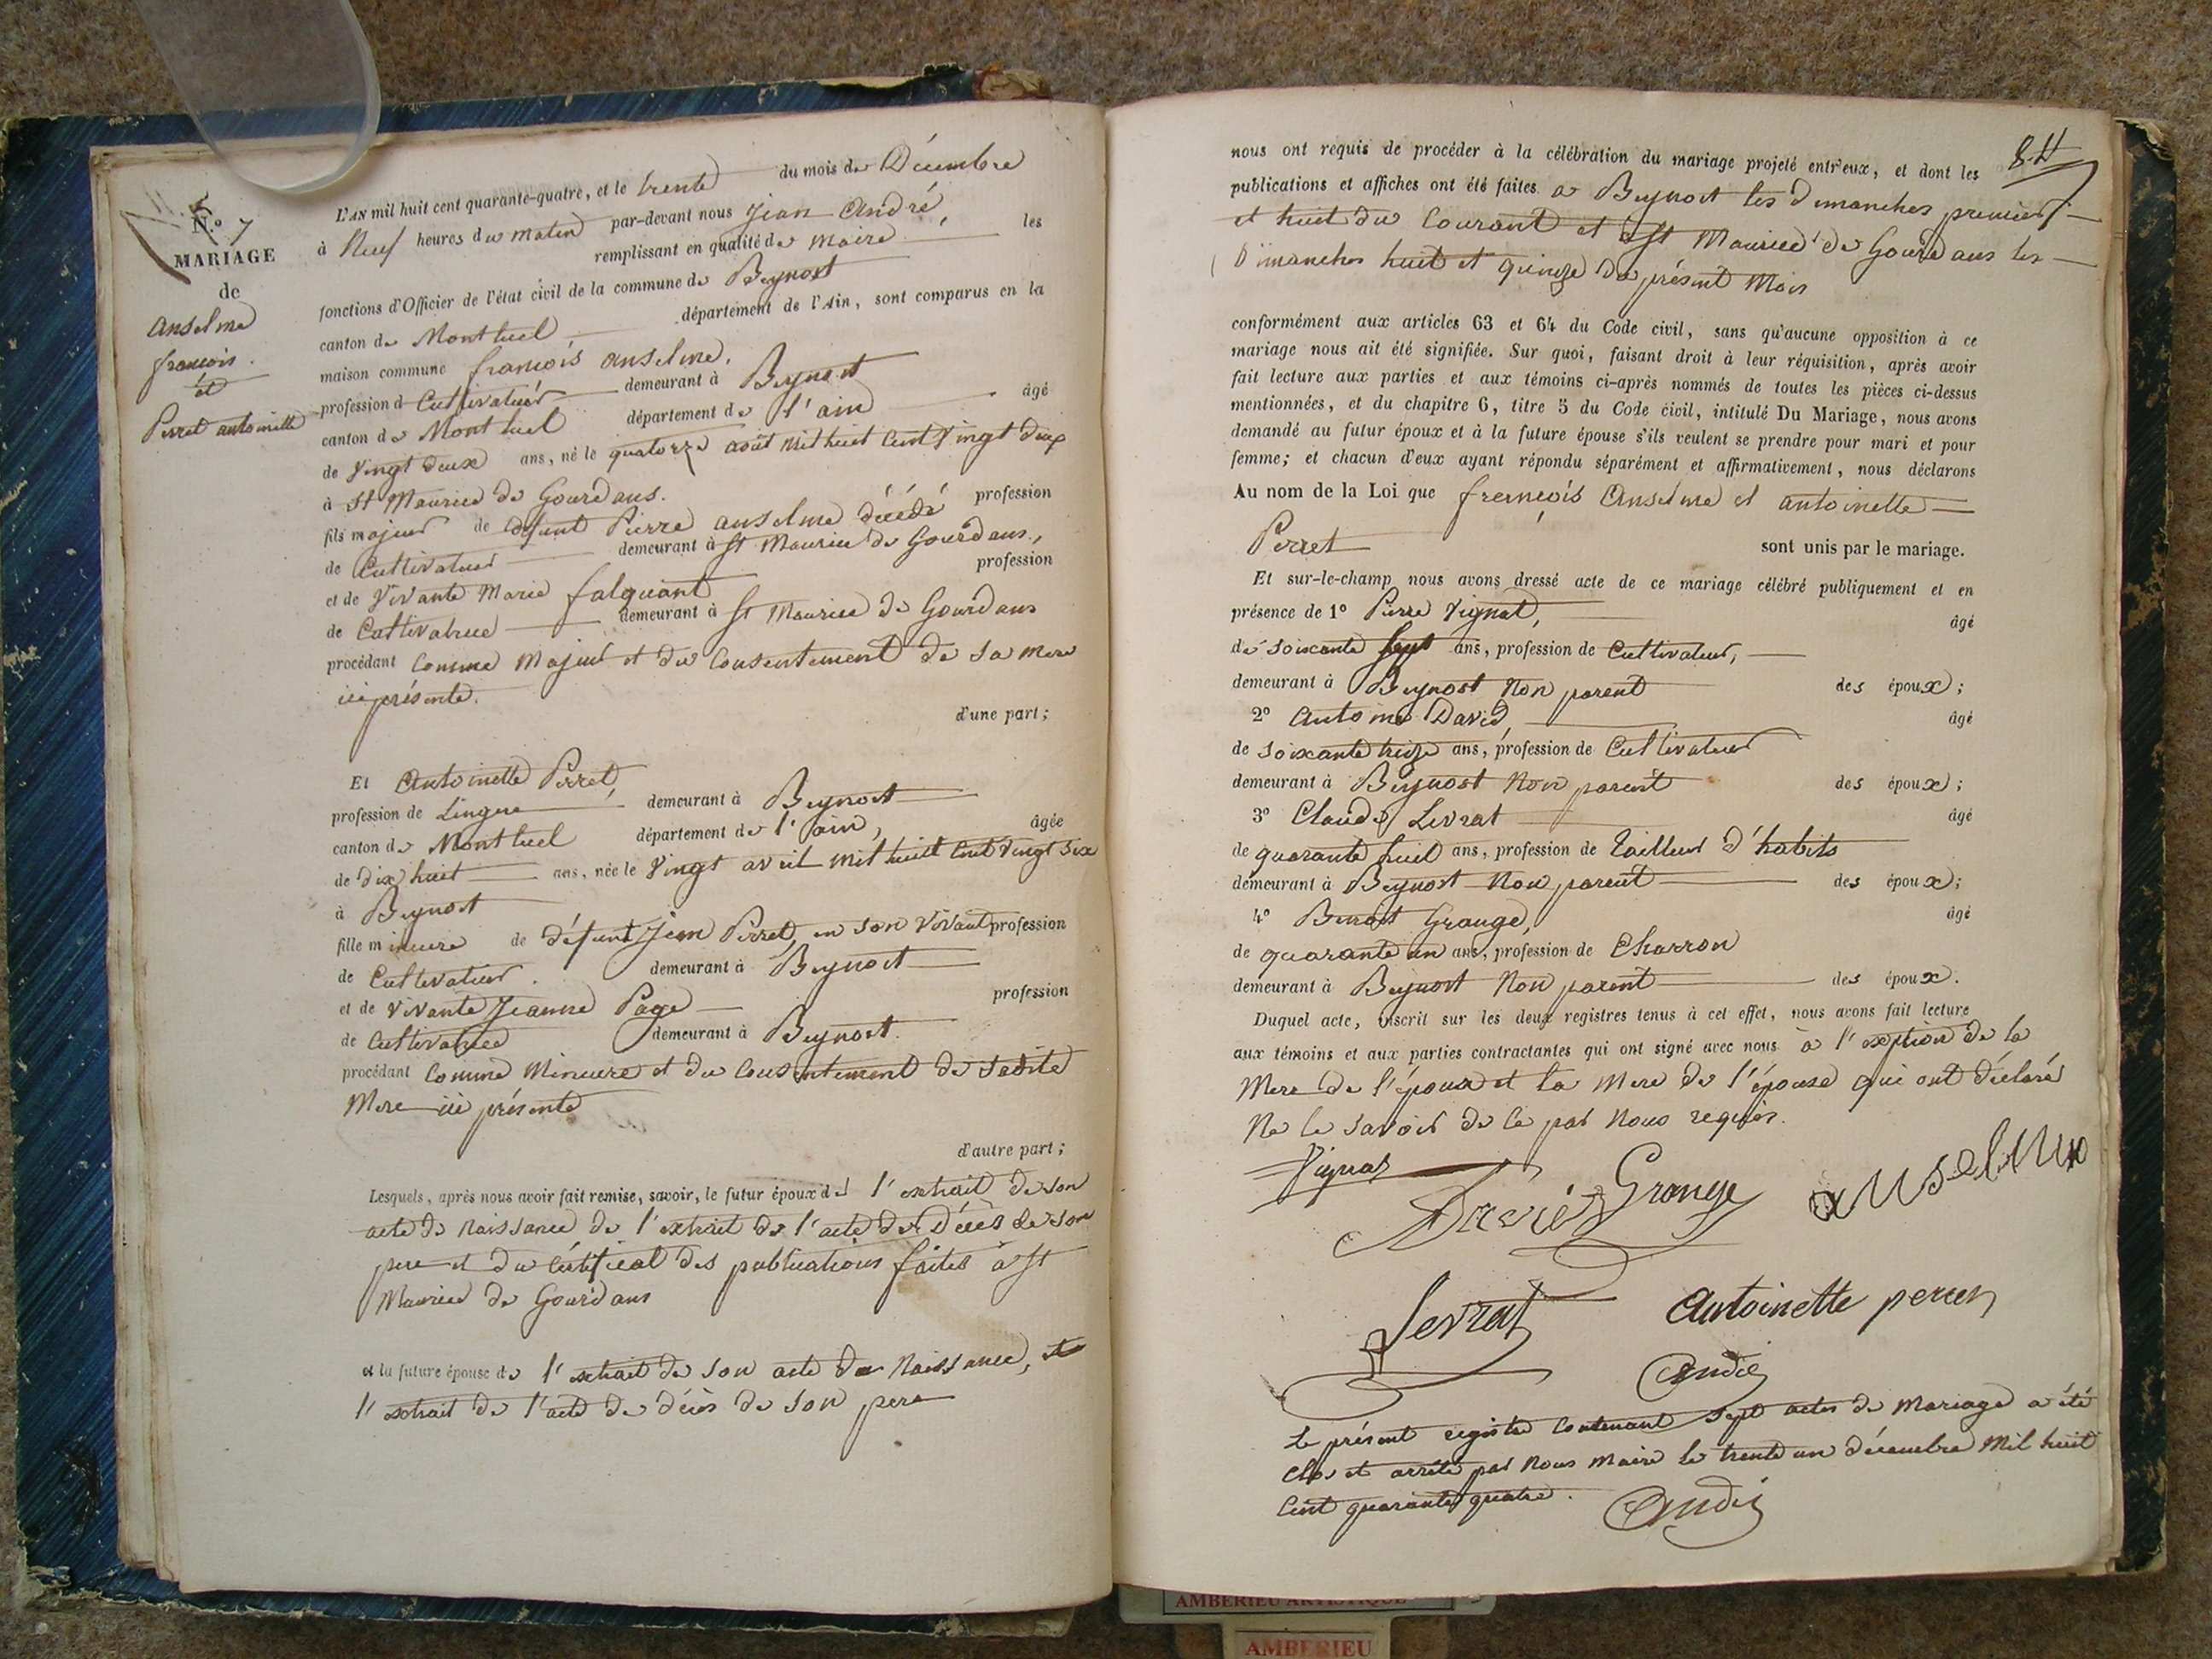 N.º 7
MARIAGE
de
Anselme
françois.
et
Perret antoinette
L'AN mil huit cent quarante-quatre, et le trente du mois de Décembre
à Neuf heures du matin par-devant nous Jean André,
remplissant en qualité de maire les
fonctions d'Officier de l'état civil de la commune de Beynost
canton de Montluel département de l'Ain, sont comparus en la
maison commune françois anselme,
profession d Cultivateur demeurant à Beynost
canton de Montluel département de l'ain âgé
de vingt deux ans, né le quatorze août mil huit cent vingt deux
à St Maurice de Gourdans.
fils majeur de défunt Pierre anselme décédé profession
de Cultivateur demeurant à St Maurice de Gourdans,
et de vivante Marie falquant profession
de Cultivatrice demeurant à St Maurice de Gourdans
procédant comme majeur et du consentement de sa mere
ici présente.
d'une part;
Et Antoinette Perret,
profession de Lingere demeurant à Beynost
canton de Montluel département de l'ain, âgée
de dix huit ans, née le vingt avril mil huit cent vingt six
à Beynost
fille mineure de défunt Jean Perret, en son vivant profession
de Cultivateur. demeurant à Beynost
et de vivante Jeanne Page profession
de Cultivatrice demeurant à Beynost.
procédant comme mineure et du consentement de sadite
Mere ici présente
d'autre part;
Lesquels, après nous avoir fait remise, savoir, le futur époux de l'extrait de son
acte de naissance de l'extrait de l'acte de décès de son
pere et du certificat des publications faites à St
Maurice de Gourdans
et la future épouse de l'extrait de son acte de naissance, et
l'extrait de l'acte de décès de son pere
84
nous ont requis de procéder à la célébration du mariage projeté entr'eux, et dont les
publications et affiches ont été faites à Beynost les Dimanches premier
et huit du courant et à St Maurice de Gourdans les
Dimanches huit et quinze du présent mois
conformément aux articles 63 et 64 du Code civil, sans qu'aucune opposition à ce
mariage nous ait été signifiée. Sur quoi, faisant droit à leur réquisition, après avoir
fait lecture aux parties et aux témoins ci-après nommés de toutes les pièces ci-dessus
mentionnées, et du chapitre 6, titre 5 du Code civil, intitulé Du Mariage, nous avons
demandé au futur époux et à la future épouse s'ils veulent se prendre pour mari et pour
femme; et chacun d'eux ayant répondu séparément et affirmativement, nous déclarons
Au nom de la Loi que françois Anselme et antoinette
Perret sont unis par le mariage.
Et sur-le-champ nous avons dressé acte de ce mariage célébré publiquement et en
présence de 1º Pierre Vignat, âgé
de soixante sept ans, profession de Cultivateur,
demeurant à Beynost Non parent des époux;
2º Antoine David, âgé
de soixante treize ans, profession de Cultivateur
demeurant à Beynost Non parent des époux;
3º Claude Levrat âgé
de quarante huit ans, profession de Tailleur d'habits
demeurant à Beynost Non parent des époux;
4º Benoit Grange, âgé
de quarante un ans, profession de Charron
demeurant à Beynost Non parent des époux.
Duquel acte, inscrit sur les deux registres tenus à cet effet, nous avons fait lecture
aux témoins et aux parties contractantes qui ont signé avec nous à l'exption de la
Mere de l'époux et la mere de l'épouse qui ont déclaré
Ne le savoir de ce par nous requis.
Vignat
David Grange anselme
Levrat Antoinette perret
André
Le présent registre contenant sept actes de mariage a été
clos et arrêté par nous maire le trente un décembre mil huit
cent quarante quatre. André
AMBERIEU ARTISTIQUE
AMBERIEU